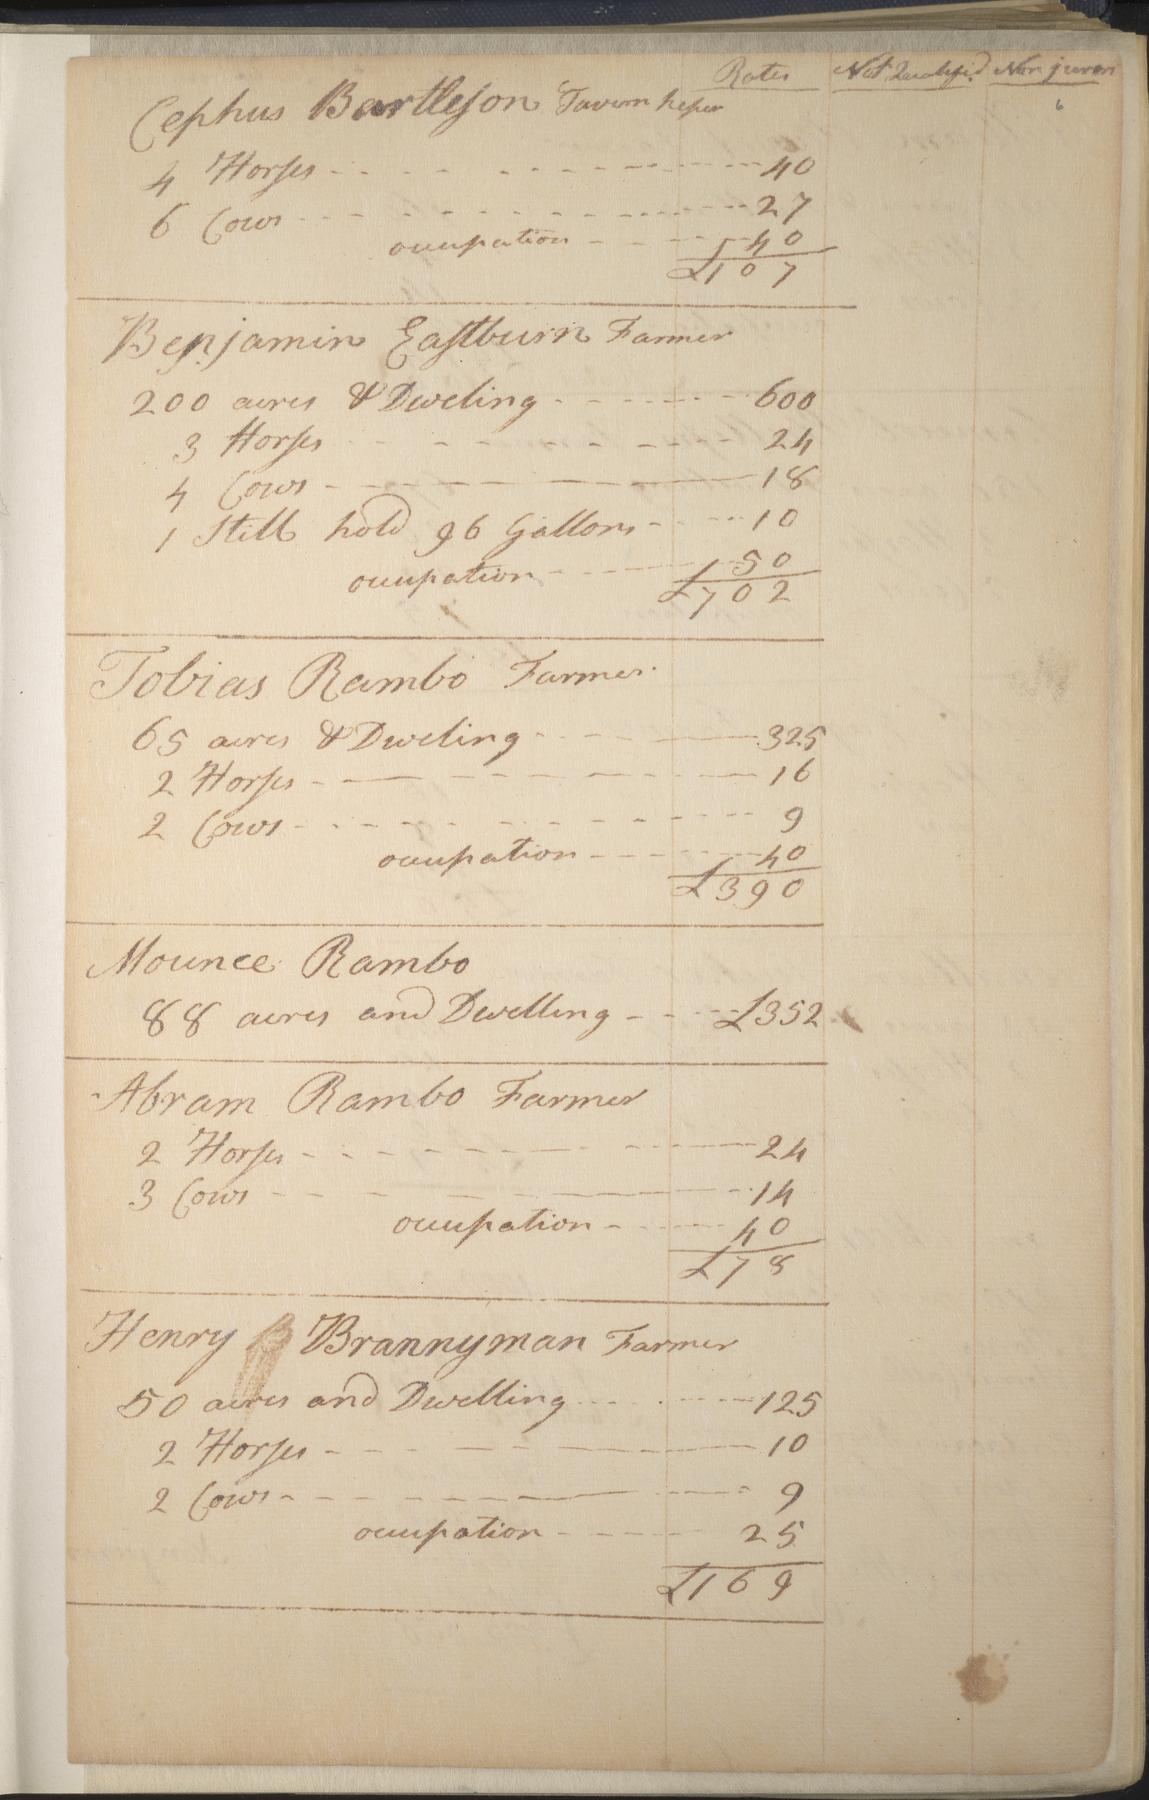 Rates Not Qualifi'd Non jurors
6
Cephus Bartleson Tavern keper
4 Horses 40
6 Cows 27
ocupation 40
£107
Benjamin Eastburn Farmer
200 acres & Dweling 600
3 Horses 24
4 Cows 18
1 Still hold 96 Gallons 10
ocupation 50
£702
Tobias Rambo Farmer
65 acres & Dweling 325
2 Horses 16
2 Cows 9
ocupation 40
£390
Mounce Rambo
88 acres and Dwelling £352
Abram Rambo Farmer
2 Horses 24
3 Cows 14
ocupation 40
£78
Henry Brannyman Farmer
50 acres and Dwelling 125
2 Horses 10
2 Cows 9
ocupation 25
£169